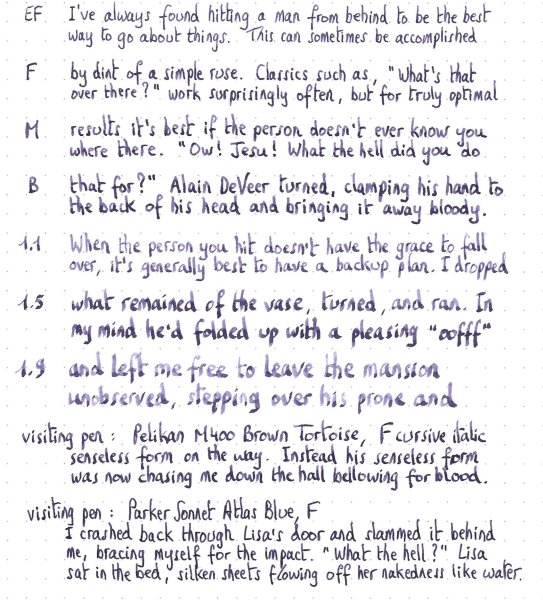 EF I've always found hitting a man from behind to be the best
way to go about things. This can sometimes be accomplished
F by dint of a simple ruse. Classics such as, "What's that
over there?" work surprisingly often, but for truly optimal
M results it's best if the person doesn't ever know you
where there. "Ow! Jesu! What the hell did you do
B that for?" Alain DeVeer turned, clamping his hand to
the back of his head and bringing it away bloody.
1.1 When the person you hit doesn't have the grace to fall
over, it's generally best to have a backup plan. I dropped
1.5 what remained of the vase, turned, and ran. In
my mind he'd folded up with a pleasing "oofff"
1.9 and left me free to leave the mansion
unobserved, stepping over his prone and
visiting pen : Pelikan M400 Brown Tortoise, F cursive italic
senseless form on the way. Instead his senseless form
was now chasing me down the hall bellowing for blood.
visiting pen : Parker Sonnet Atlas Blue, F
I crashed back through Lisa's door and slammed it behind
me, bracing myself for the impact. "What the hell?" Lisa
sat in the bed, silken sheets flowing off her nakedness like water.